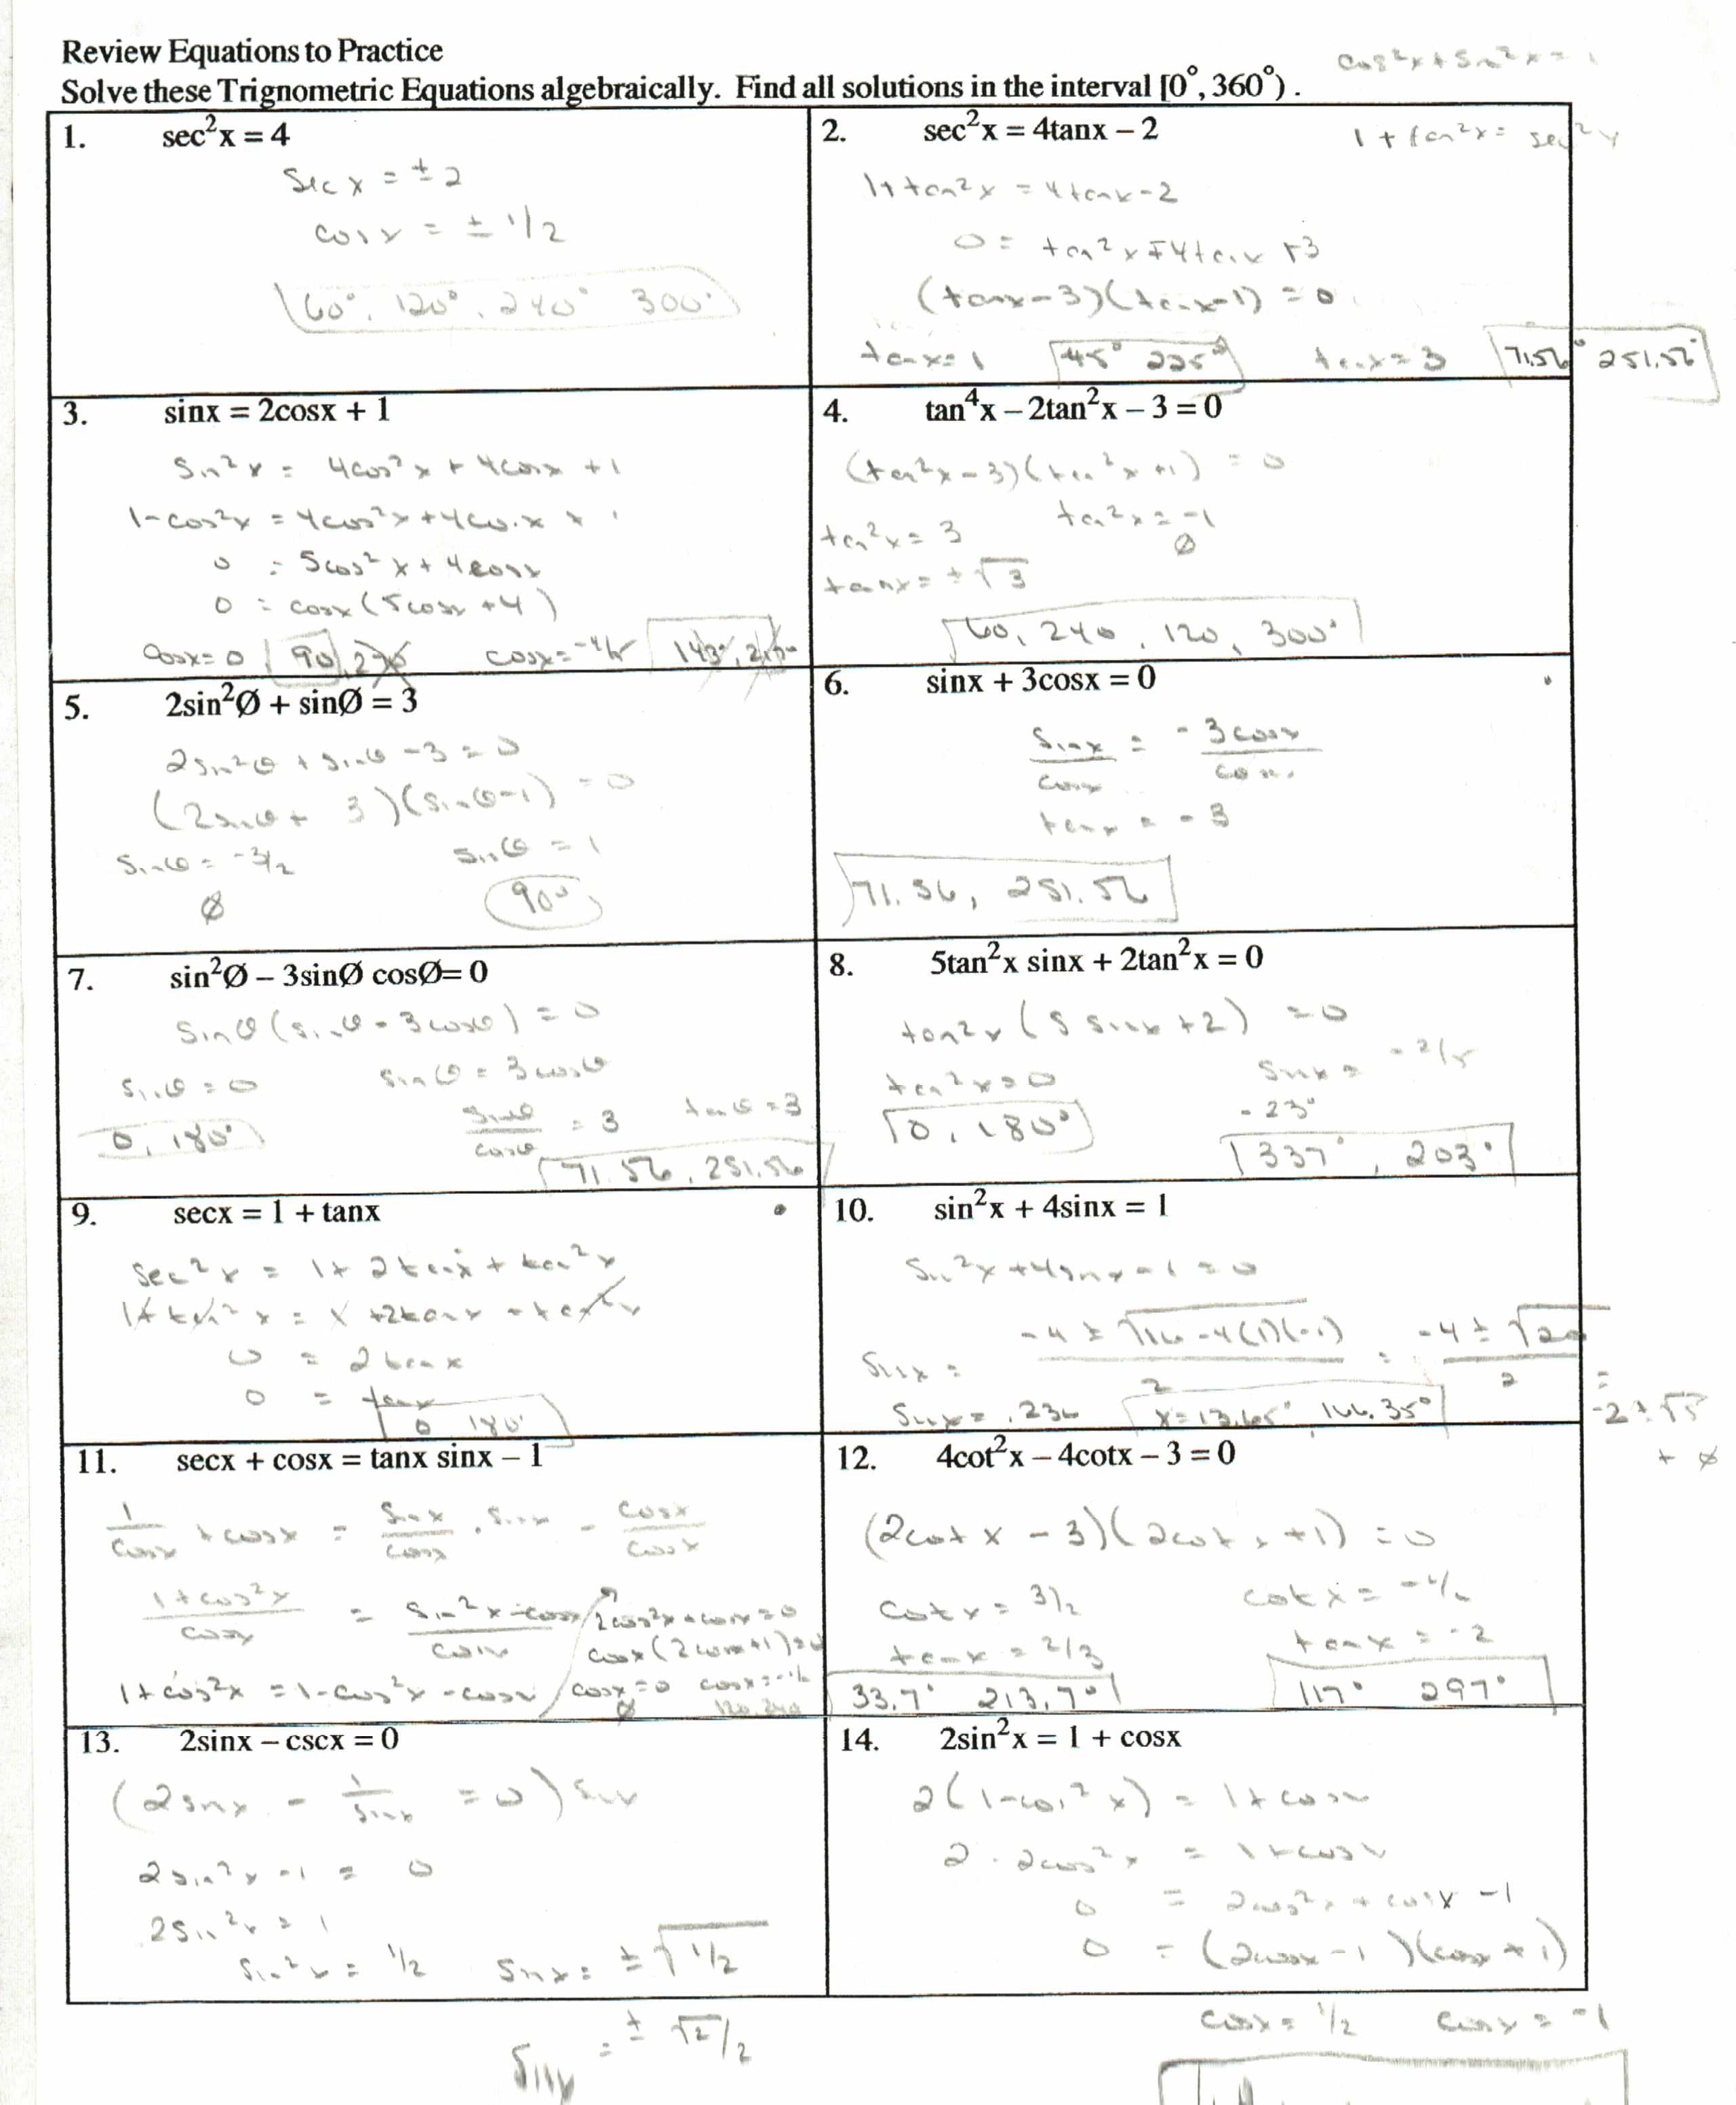 Review Equations to Practice
cos²x + sin²x = 1
Solve these Trignometric Equations algebraically. Find all solutions in the interval [0°, 360°).
1. sec²x = 4
sec x = ±2
cosx = ± 1/2
60°, 120°, 240° 300°
2. sec²x = 4tanx – 2
1 + tan²x = sec²x
1 + tan²x = 4tanx - 2
0 = tan²x - 4tanx + 3
(tanx - 3)(tanx - 1) = 0
tanx = 1 45° 225° tanx = 3 71.56° 251.56°
3. sinx = 2cosx + 1
sin²x = 4cos²x + 4cosx + 1
1 - cos²x = 4cos²x + 4cosx + 1
0 = 5cos²x + 4cosx
0 = cosx(5cosx + 4)
cosx = 0 90, 270 cosx = -4/5 143°, 217°
4. tan⁴x – 2tan²x – 3 = 0
(tan²x - 3)(tan²x + 1) = 0
tan²x = 3 tan²x = -1
∅
tanx = ±√3
60, 240, 120, 300°
5. 2sin²Ø + sinØ = 3
2sin²θ + sinθ - 3 = 0
(2sinθ + 3)(sinθ - 1) = 0
sinθ = -3/2 sinθ = 1
∅ 90°
6. sinx + 3cosx = 0
sinx = -3cosx
cosx cosx
tanx = -3
71.56, 251.56
7. sin²Ø – 3sinØ cosØ= 0
sinθ(sinθ - 3cosθ) = 0
sinθ = 0 sinθ = 3cosθ
0, 180° sinθ/cosθ = 3 tanθ = 3
71.56, 251.56
8. 5tan²x sinx + 2tan²x = 0
tan²x(5sinx + 2) = 0
tan²x = 0 sinx = -2/5
0, 180° -23°
337°, 203°
9. secx = 1 + tanx
sec²x = 1 + 2tanx + tan²x
1 + tan²x = 1 + 2tanx + tan²x
0 = 2tanx
0 = tanx
0 180°
10. sin²x + 4sinx = 1
sin²x + 4sinx - 1 = 0
sinx = -4 ± √16 - 4(1)(-1) = -4 ± √20
2 2 =
sinx = .236 x = 13.65° 166.35° -2 ± √5
+ ∅
11. secx + cosx = tanx sinx – 1
1/cosx + cosx = sinx/cosx · sinx - cosx/cosx
1 + cos²x/cosx = sin²x - cosx/cosx
1 + cos²x = 1 - cos²x - cosx
2cos²x + cosx = 0
cosx(2cosx + 1) = 0
cosx = 0 cosx = -1/2
∅ 120, 240
12. 4cot²x – 4cotx – 3 = 0
(2cotx - 3)(2cotx + 1) = 0
cotx = 3/2 cotx = -1/2
tanx = 2/3 tanx = -2
33.7° 213.7° 117° 297°
13. 2sinx – cscx = 0
(2sinx - 1/sinx = 0) sinx
2sin²x - 1 = 0
2sin²x = 1
sin²x = 1/2 sinx = ±√1/2
sinx = ± √2/2
14. 2sin²x = 1 + cosx
2(1 - cos²x) = 1 + cosx
2 - 2cos²x = 1 + cosx
0 = 2cos²x + cosx - 1
0 = (2cosx - 1)(cosx + 1)
cosx = 1/2 cosx = -1